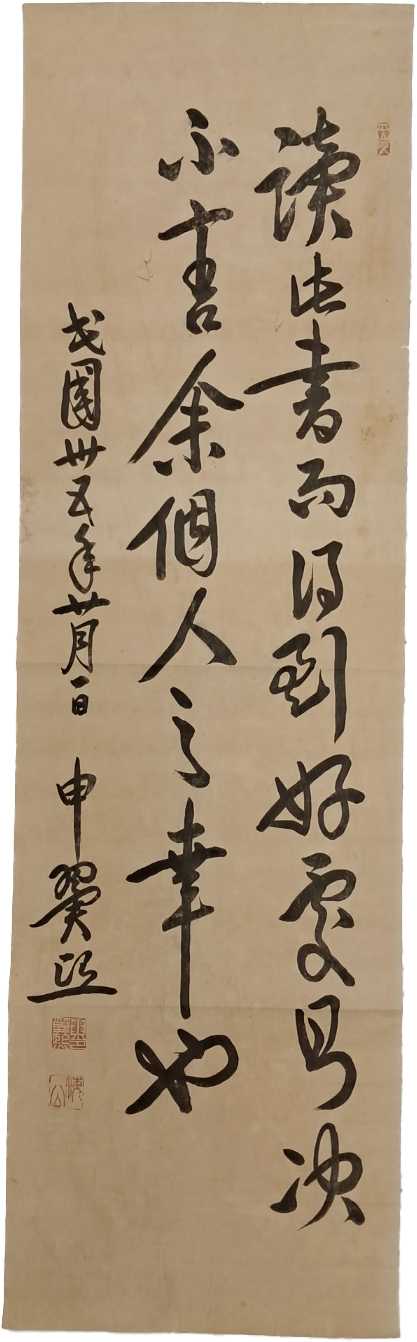 讀此書而得到好處則決
不啻余個人之幸也
民國卅五年月一日 申翼熙